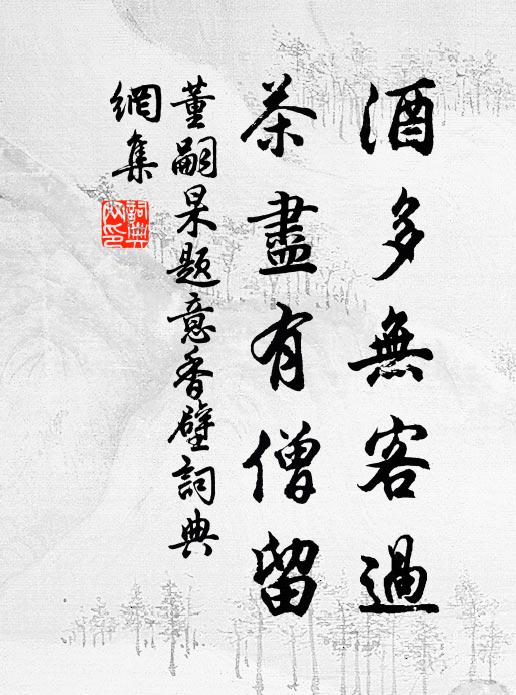 酒多無客過
茶盡有僧留
董嗣杲題意香壁詞典
網集
詞典
网印